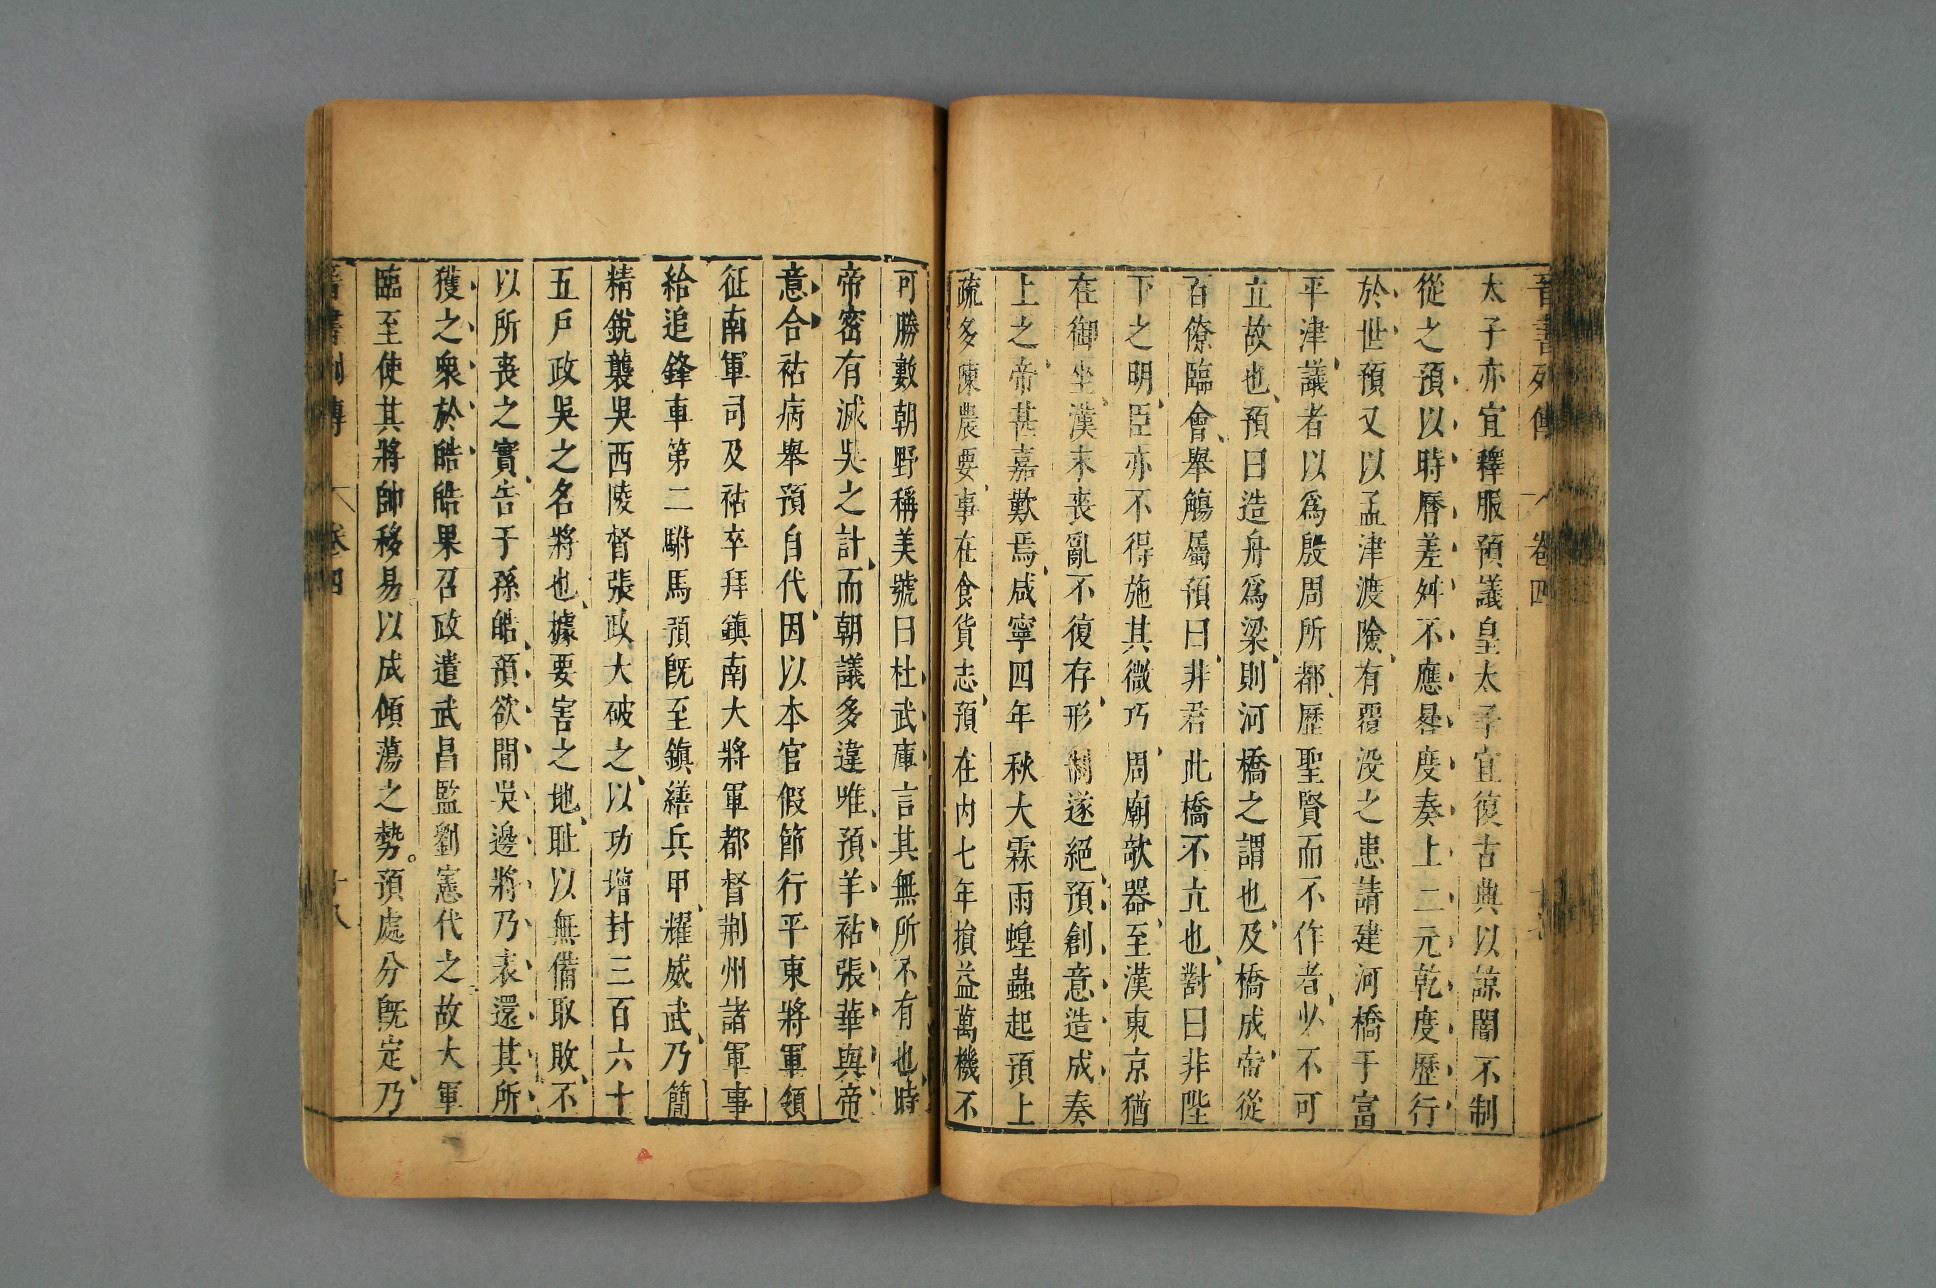 晉書列傳 卷四
太子亦宜釋服預議皇太子宜復古典以諒闇不制
從之預以時曆差舛不應晷度奏上二元乾度歷行
於世預又以孟津渡險有覆没之患請建河橋于富
平津議者以爲殷周所都歷聖賢而不作者必不可
立故也預曰造舟爲梁則河橋之謂也及橋成帝從
百僚臨會舉觴屬預曰非君此橋不立也對曰非陛
下之明臣亦不得施其微巧周廟欹器至漢東京猶
在御坐漢末喪亂不復存形制遂絕預創意造成奏
上之帝甚嘉歎焉咸寧四年秋大霖雨蝗蟲起預上
疏多陳農要事在食貨志預在内七年損益萬機不
可勝數朝野稱美號曰杜武庫言其無所不有也時
帝密有滅吳之計而朝議多違唯預羊祜張華與帝
意合祜病舉預自代因以本官假節行平東將軍領
征南軍司及祜卒拜鎮南大將軍都督荆州諸軍事
給追鋒車第二駙馬預旣至鎮繕兵甲耀威武乃簡
精銳襲吳西陵督張政大破之以功增封三百六十
五戶政吳之名將也據要害之地恥以無備取敗不
以所喪之實告于孫皓預欲間吳邊將乃表還其所
獲之衆於皓皓果召政遣武昌監劉憲代之故大軍
臨至使其將帥移易以成傾蕩之勢。預處分旣定乃
晉書列傳 卷四 十八